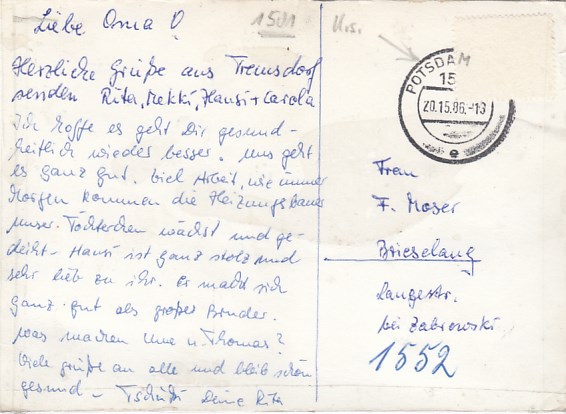 Liebe Oma!
1581
U.s.
Herzliche Grüße aus Tremsdorf
senden Rita, Mekki, Hansi + Carola
Ich hoffe es geht Dir gesund-
heitlich wieder besser. Uns geht
es ganz gut. Viel Arbeit, wie immer
Morgen kommen die Heizungsbauer
Unser Töchterchen wächst und ge-
deiht - Hansi ist ganz stolz und
sehr lieb zu ihr. Er macht sich
ganz gut als großer Bruder.
Was machen Uwe u. Thomas?
Viele Grüße an alle und bleib schön
gesund - Tschüß Deine Rita
POTSDAM
15
20.15.86.-18
e
Frau
F. Moser
Brieselang
Langestr.
bei Zabrowski
1552